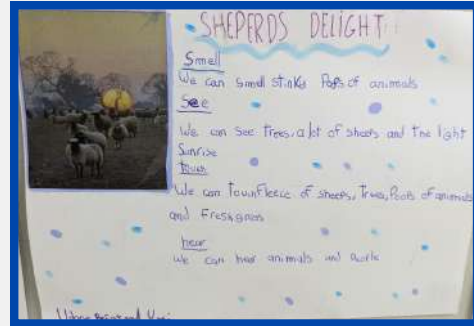 SHEPERDS DELIGHT
Smell
We can smell stinks Poops of animals
See
We can see trees, a lot of sheeps and the light
Sunrise
touch
We can touch Fleece of sheeps, trees, Poops of animals
and Fresh grass
hear
We can hear animals and